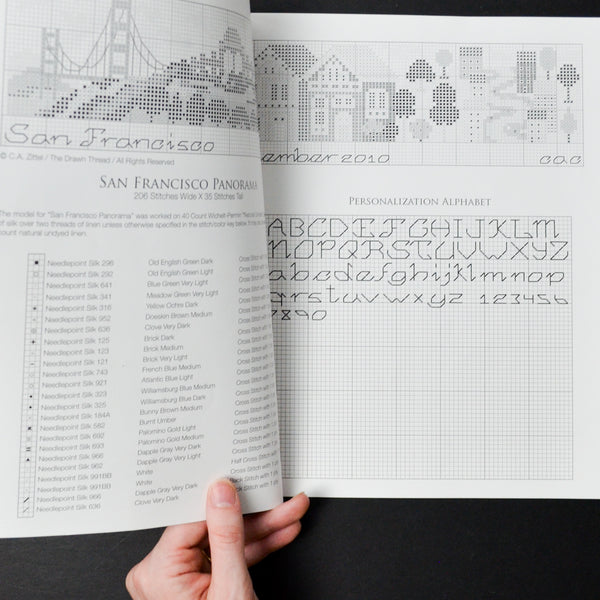 San Francisco
ember 2010
cac
© C.A. Zittel / The Drawn Thread / All Rights Reserved
SAN FRANCISCO PANORAMA
206 Stitches Wide X 35 Stitches Tall
The model for "San Francisco Panorama" was worked on 40 Count
of silk over two threads of linen unless otherwise specified in the stitch/color key below.
count natural undyed linen.
Needlepoint Silk 296 Old English Green Dark Cross Stitch with
Needlepoint Silk 292 Old English Green Light Cross Stitch with
Needlepoint Silk 641 Blue Green Very Light Cross Stitch with
Needlepoint Silk 341 Meadow Green Very Light Cross Stitch with
Needlepoint Silk 316 Yellow Ochre Dark Cross Stitch with
Needlepoint Silk 952 Dresden Brown Medium Cross Stitch with
Needlepoint Silk 636 Clove Very Dark Cross Stitch with
Needlepoint Silk 125 Brick Dark Cross Stitch with
Needlepoint Silk 123 Brick Medium Cross Stitch with
Needlepoint Silk 121 Brick Very Light Cross Stitch with
Needlepoint Silk 743 French Blue Medium Cross Stitch with
Needlepoint Silk 921 Atlantic Blue Light Cross Stitch with
Needlepoint Silk 323 Williamsburg Blue Medium Cross Stitch with
Needlepoint Silk 325 Williamsburg Blue Dark Cross Stitch with
Needlepoint Silk 184A Bunny Brown Medium Cross Stitch with
Needlepoint Silk 582 Burnt Umber Cross Stitch with
Needlepoint Silk 692 Palomino Gold Light Cross Stitch with
Needlepoint Silk 693 Palomino Gold Medium Cross Stitch with
Needlepoint Silk 966 Dapple Gray Very Dark Cross Stitch with
Needlepoint Silk 962 Dapple Gray Very Light Cross Stitch with
Needlepoint Silk 991BB White Cross Stitch with
Needlepoint Silk 991BB White Half Cross Stitch with
Needlepoint Silk 966 Dapple Gray Very Dark Back Stitch with 1 ply
Needlepoint Silk 636 Clove Very Dark Back Stitch with 1 ply
PERSONALIZATION ALPHABET
ABCDEFGHIJKLM
NOPQRSTUVWXYZ
abcdefghijklmnop
qrstuvwxyz 123456
7890